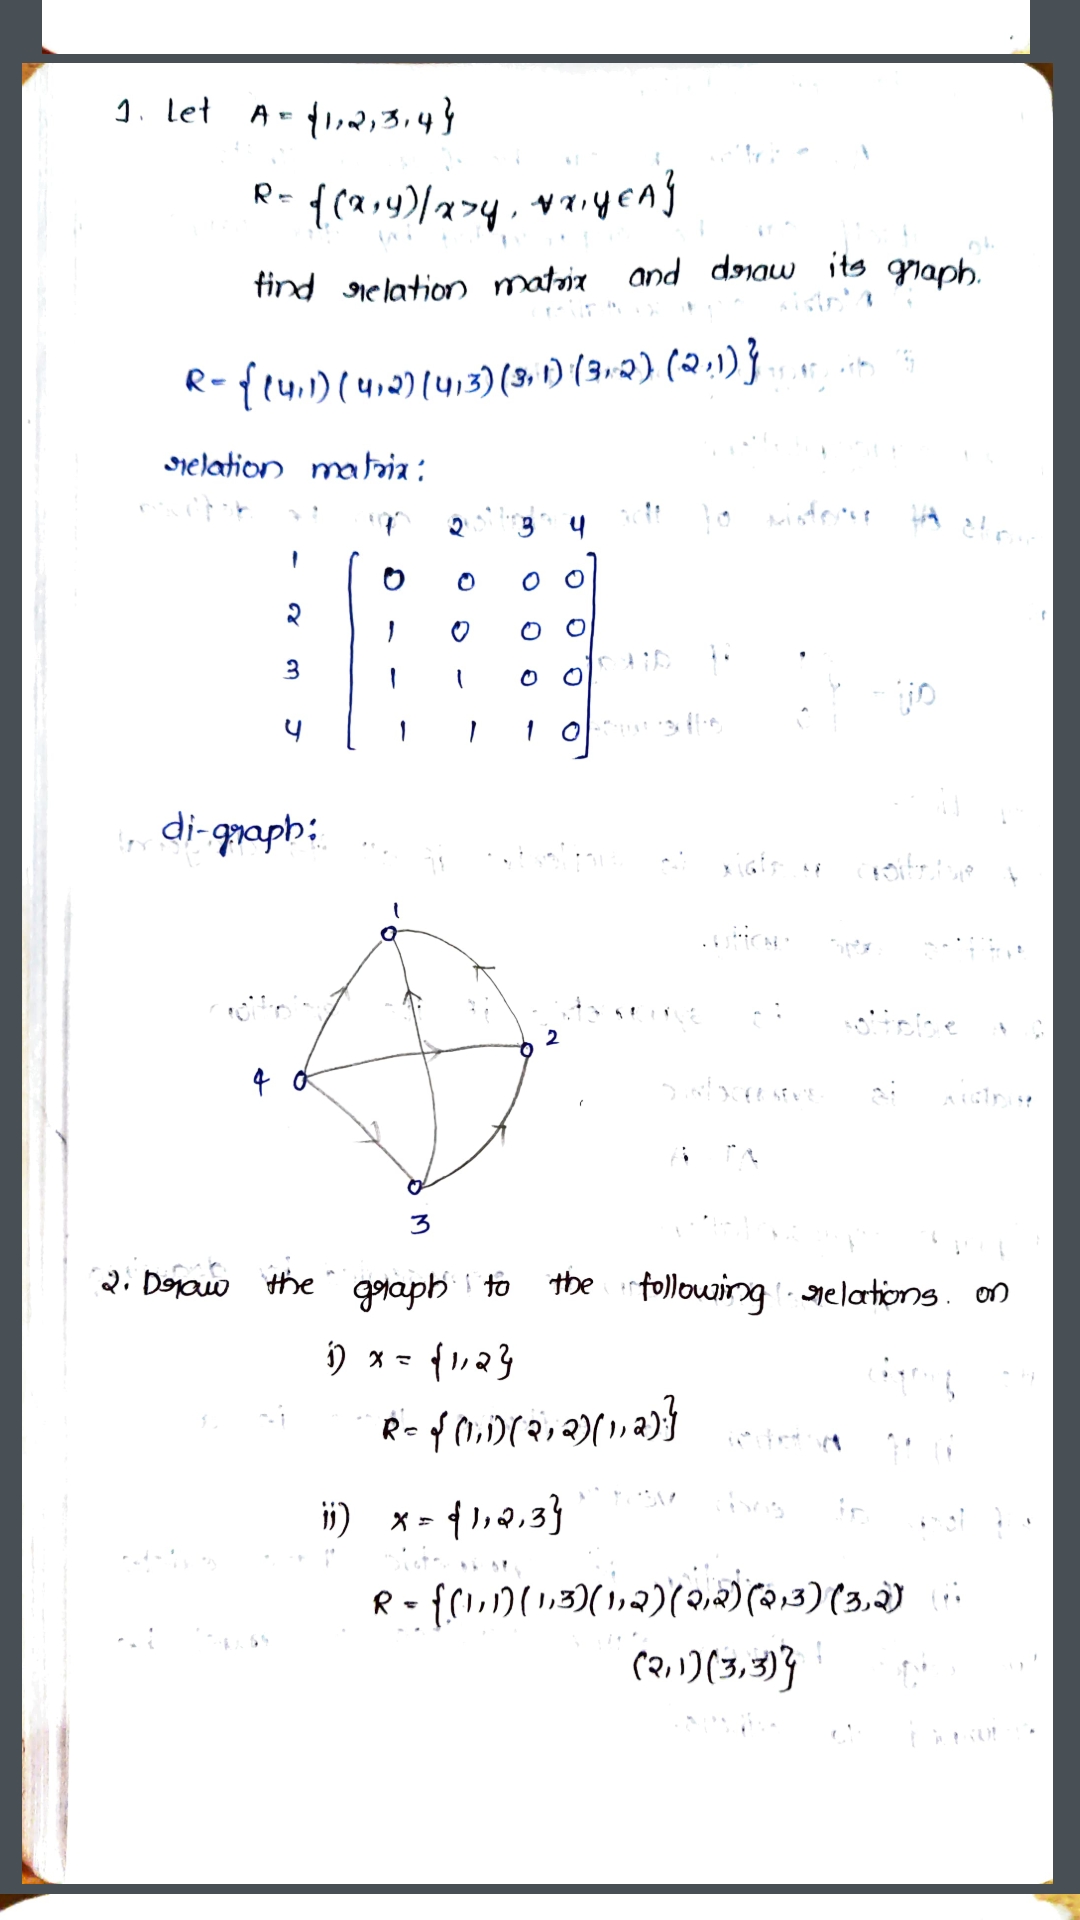 1. Let A = {1,2,3,4}
R = {(x,y)/x>y, ∀x,y∈A}
find relation matrix and draw its graph.
R = {(4,1)(4,2)(4,3)(3,1)(3,2)(2,1)}
relation matrix:
1 2 3 4
1 0 0 0 0
2 1 0 0 0
3 1 1 0 0
4 1 1 1 0
di-graph:
1
2
4
3
2. Draw the graph to the following relations. on
i) x = {1,2}
R = {(1,1)(2,2)(1,2)}
ii) x = {1,2,3}
R = {(1,1)(1,3)(1,2)(2,2)(2,3)(3,2)
(2,1)(3,3)}